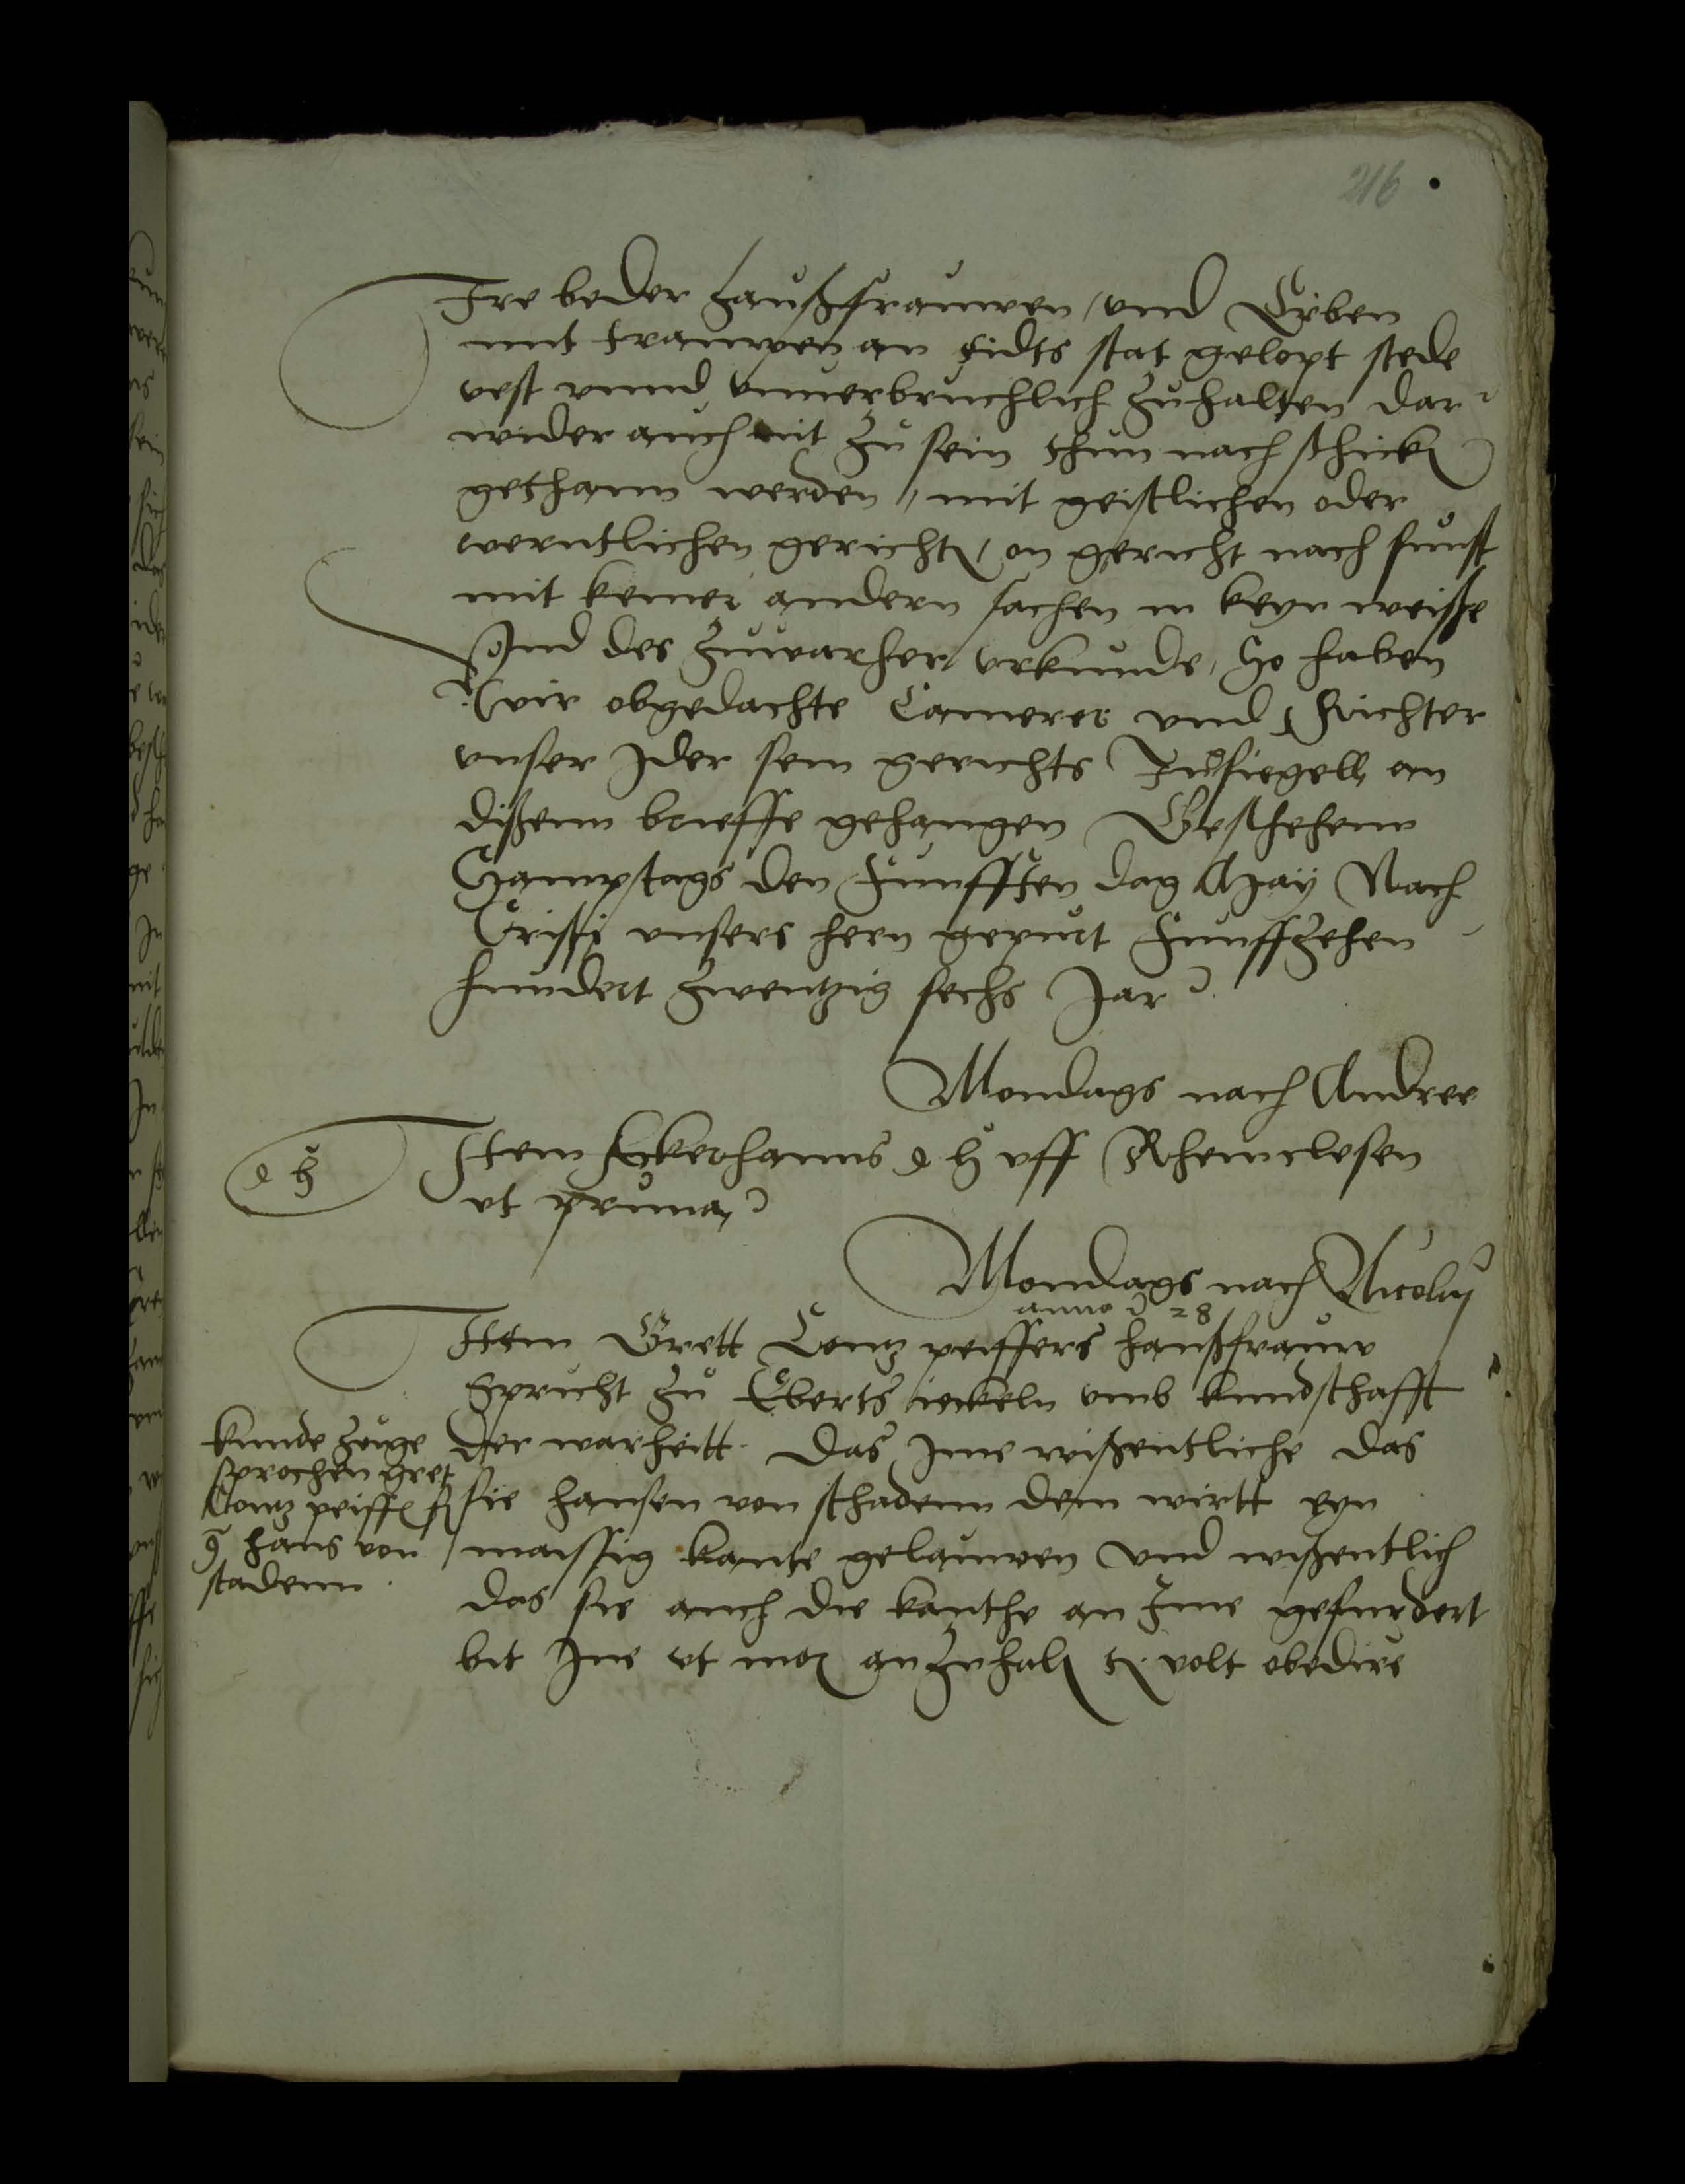 216
Ire beder haußfrauwen / vnd Erben
mit trauwen an eidts stat gelopt stede
vest vnnd vnuerbruchlich zuhalten dar
wider auch nit zu sein thun nach schick
gethann werden / mit geistlichen oder
werntlichen gericht on gericht nach sunst
mit keiner andern sachen in keyn weisse
Vnd des zuwarher vrkunde / So haben
wir obgedachte Camerer vnd Richter
vnser Jder sein gerichts Insiegell an
dißenn brieffe gehangen Geschehenn
Sampstags den Funfften dag May Nach
Cristi vnsers hern gepurt Funffzehen
hundert zwentzig sechs Jar
Mondags nach Andree
d h
Item Eckerhanns d h vff Rheinclesen
vt prima
Mondags nach Nicolaj
anno 28
Item Grett Contz peiffers haußfrauw
Spricht zu Eberts iekeln vmb kundschafft
der warheitt. Das Jme wißentliche das
sie hansen von schadenn dem wirtt eyn
maissig kante gelauwen vnd wißentlich
das sie auch die kanthe an Jme gefurdert
bit Jne vt mor anzuhal volt obedire
kunde zeuge
sprochen gret
Contz peiff
hans von
stadenn